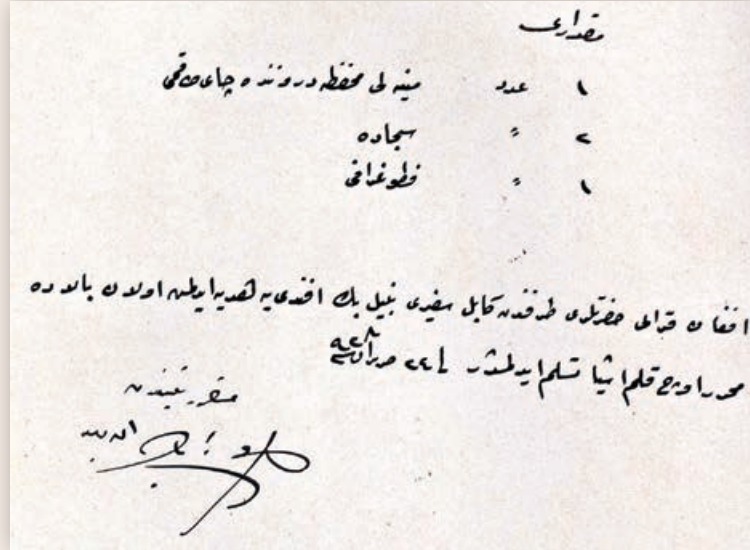 مقداری
١ عدد مینه لی محفظه دروننده چای طاقمی
٢ " سجاده
١ " فطوغرافی
افغان قرالی حضرتلری طرفندن کابل سفیری نبیل بك افندی یه هدیه ایدیلن اولان بالاده
محرر اوچ قلم اشیا تسلیم ایدلمشدر فی ٢٤ حزیران ٩٢٨